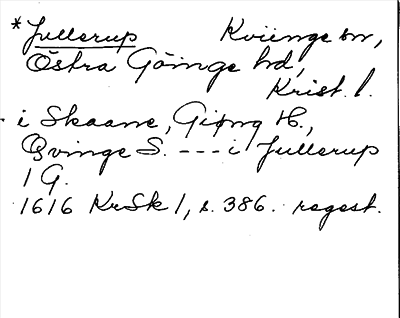 *Jullerup Kviinge sn,
Östra Göinge hd,
Krist. l.
i Skaane, Giøng H.,
Qvinge S. --- i Jullerup
1 G.
1616 KrSk 1, s. 386. regest.